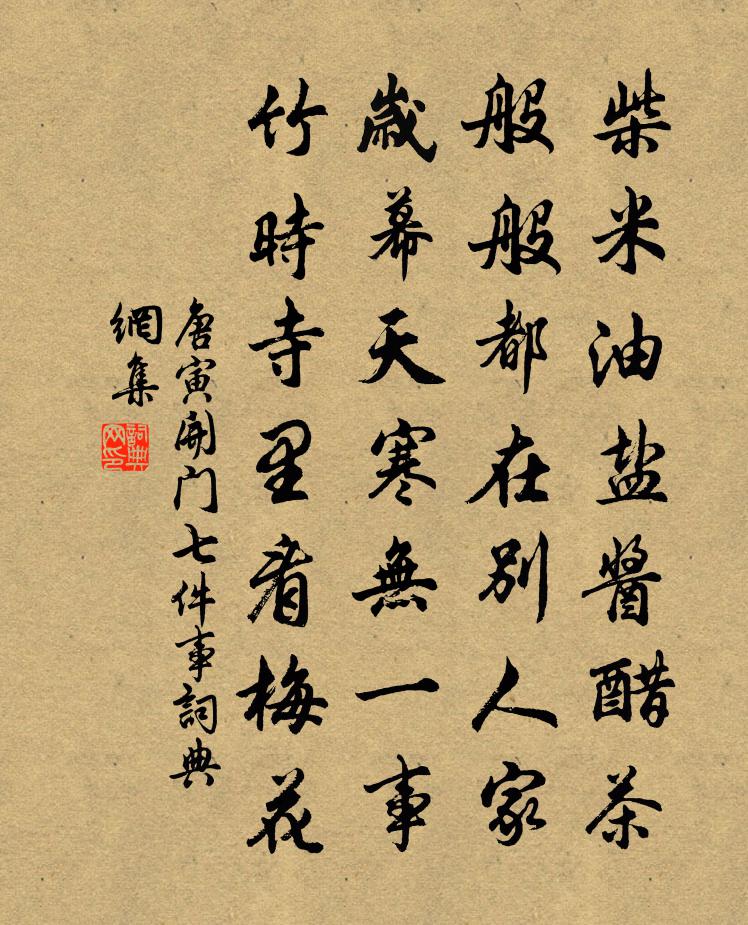 柴米油盐醬醋茶
般般都在別人家
歲暮天寒無一事
竹時寺里看梅花
唐寅開门七件事詞典
網集
詞典
网印